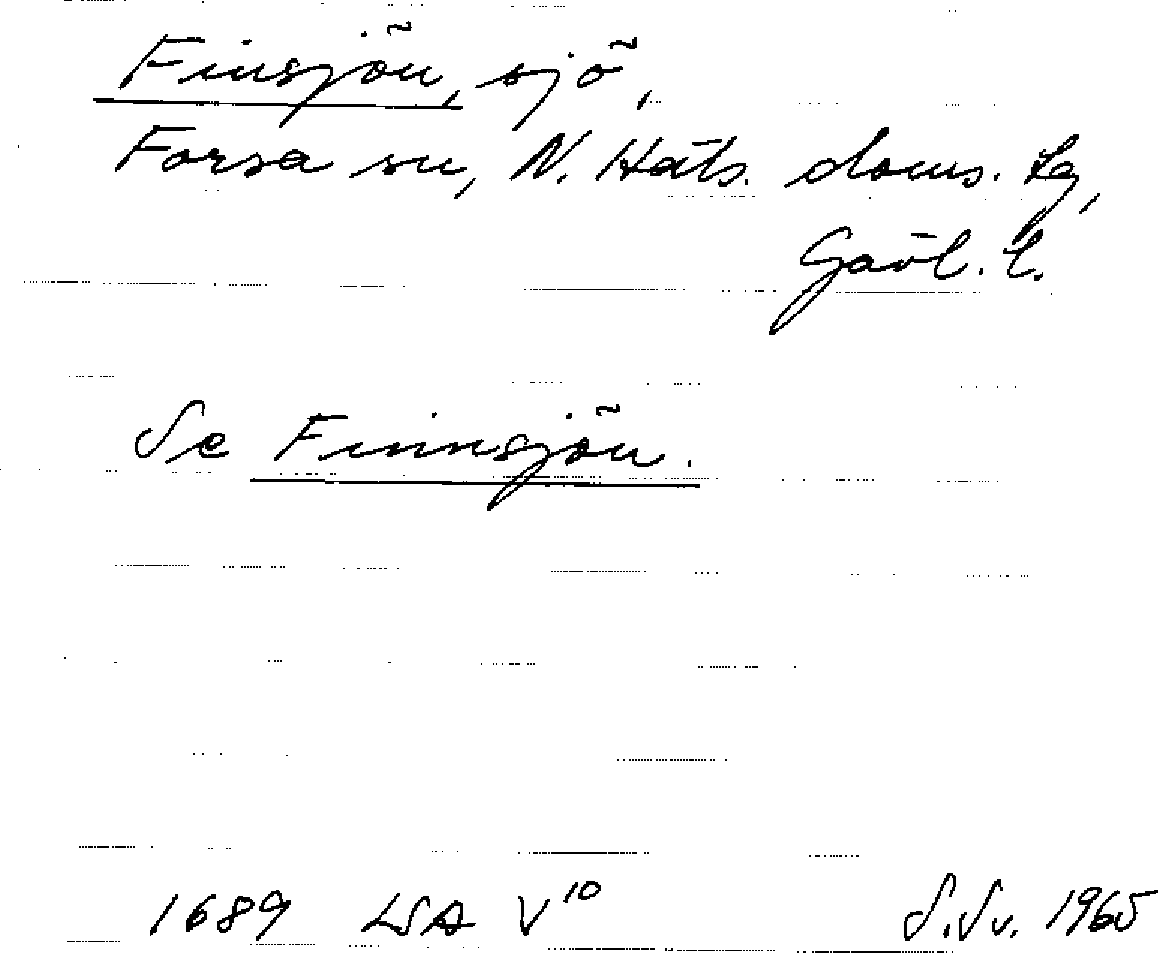 Finsjön, sjö,
Forsa sn, N. Häls. doms. lg,
Gävl. l.
Se Finnsjön.
1689 LSA V¹⁰ S. Sv. 1965